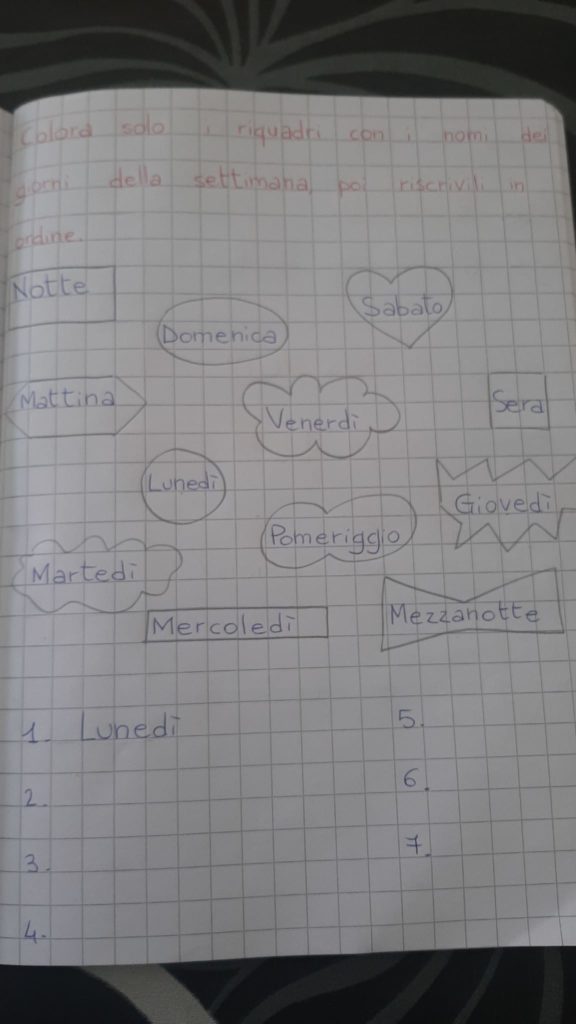 Colora solo i riquadri con i nomi dei
giorni della settimana, poi riscrivili in
ordine.
Notte
Sabato
Domenica
Mattina
Venerdì
Sera
Lunedì
Giovedì
Pomeriggio
Martedì
Mercoledì
Mezzanotte
1. Lunedì
2.
3.
4.
5.
6.
7.